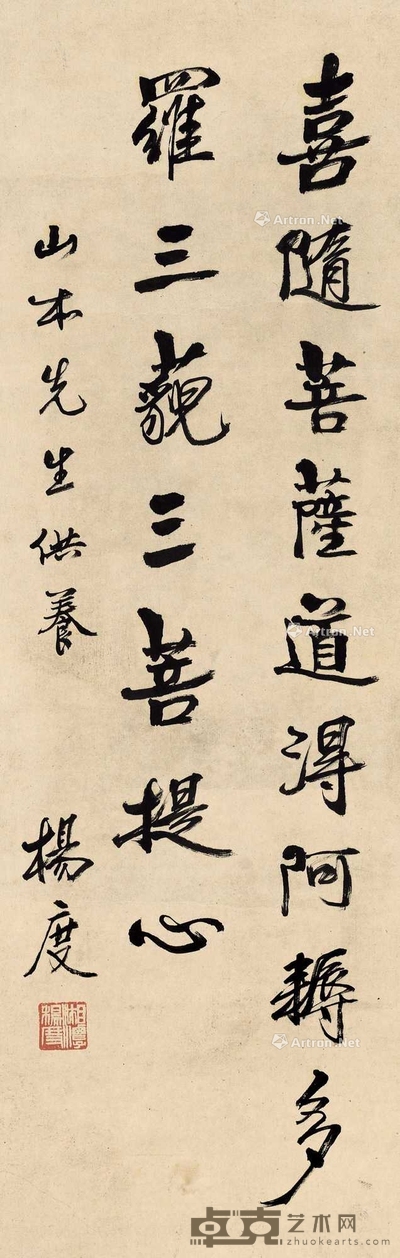 喜隨菩薩道得阿耨多
羅三藐三菩提心
山本先生供養
楊度
湘潭楊度
Artron.Net
Artron.Net
Artron.Net
Artron.Net
卓克艺术网
zhuokearts.com